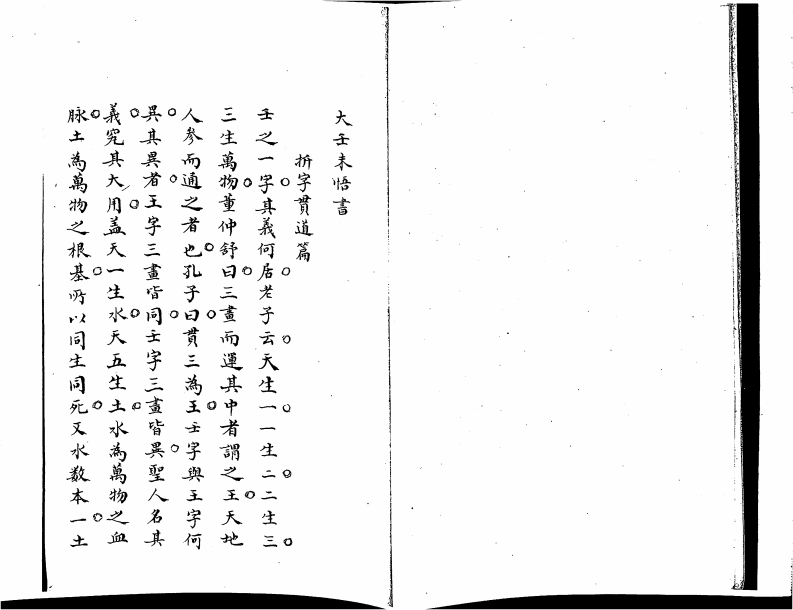 大壬未悟書
折字貫道篇
壬之一字其義何居老子云天生一一生二二生三
三生萬物董仲舒曰三畫而運其中者謂之王天地
人參而通之者也孔子曰貫三為王壬字與王字何
異其異者王字三畫皆同壬字三畫皆異聖人名其
義究其大用蓋天一生水天五生土水為萬物之血
脉土為萬物之根基所以同生同死又水數本一土